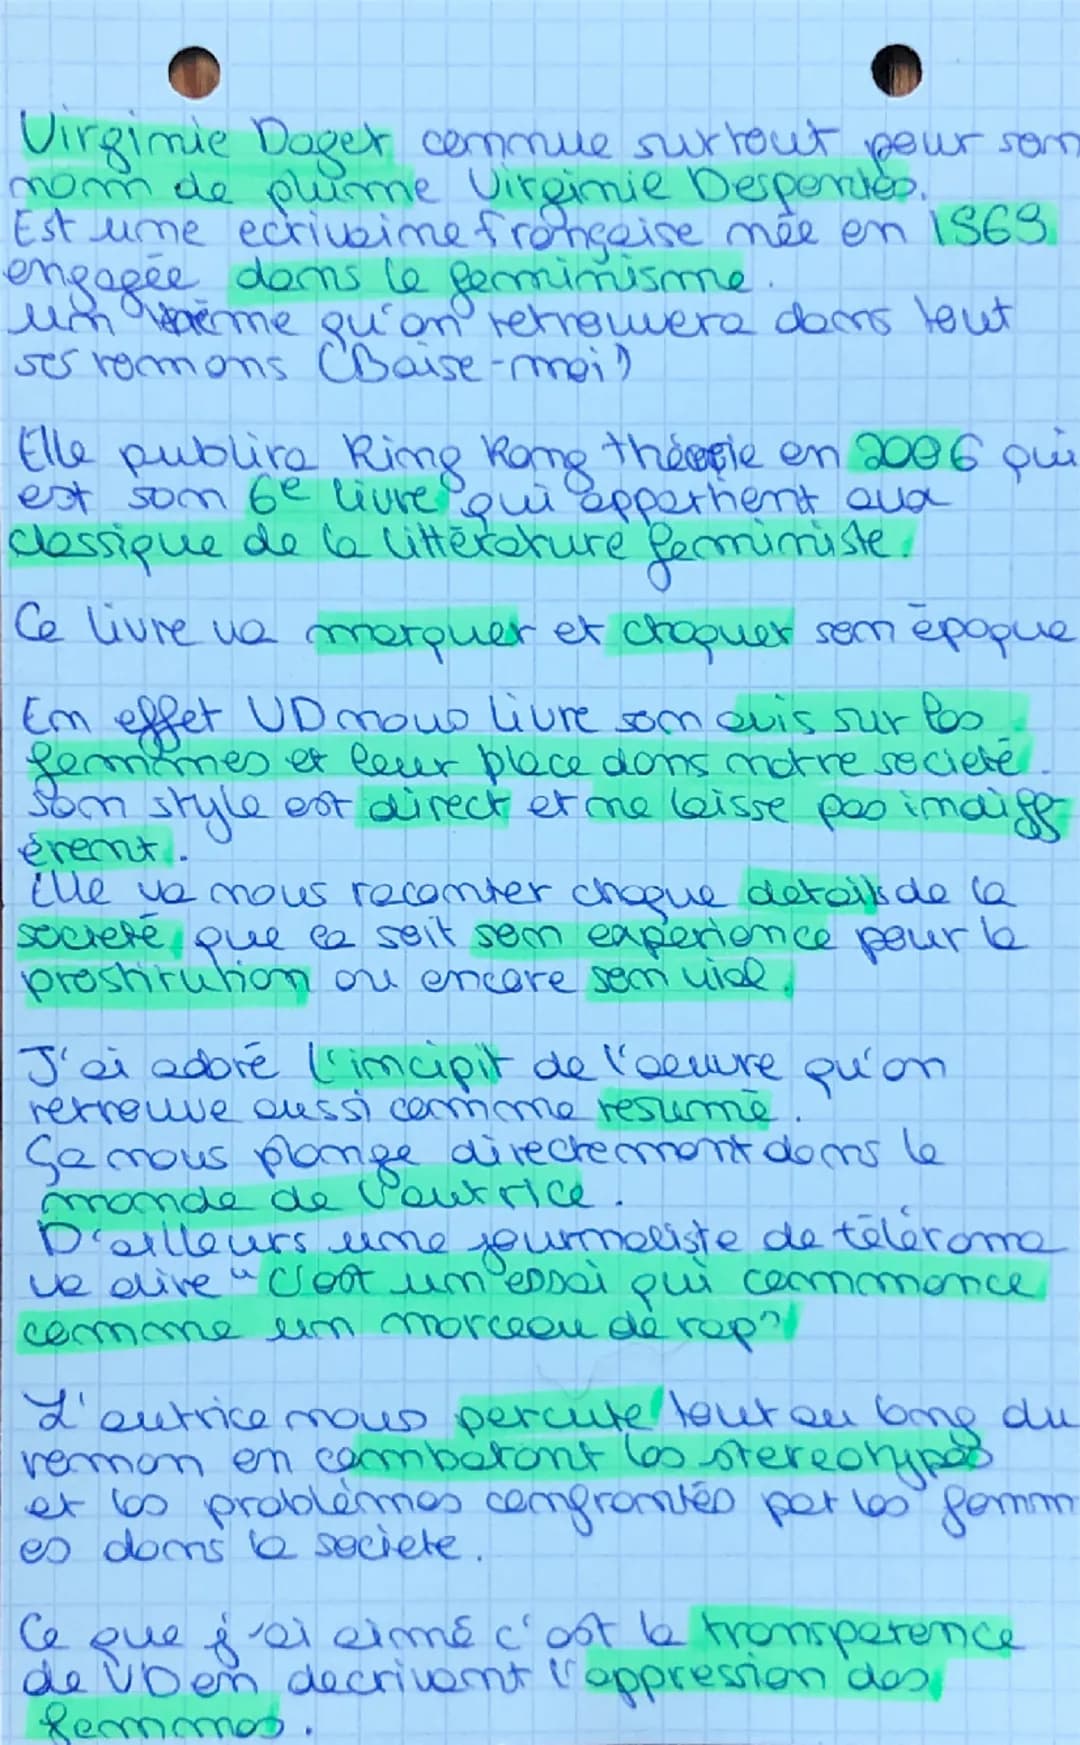 Virginie Daget connue surtout pour son
nom de plume Virginie Despentes.
Est une ecrivaine française née en 1969.
engagée dans le feminisme.
un thème qu'on retrouvera dans tout
ses romans (Baise-moi)
Elle publira King Kong théorie en 2006 qui
est son 6e livre qui appartient aux
classique de la littérature feministe.
Ce livre va marquer et choquer son époque
En effet VD nous livre son avis sur les
femmes et leur place dans notre societé.
Son style est direct et ne laisse pas indiff
érent.
Elle va nous raconter chaque details de la
societé, que ça soit son experience pour la
prostitution ou encore son viol.
J'ai adoré l'incipit de l'oeuvre qu'on
retrouve aussi comme resumé.
Ça nous plonge directement dans le
monde de l'autrice.
D'ailleurs une journaliste de télérama
va dire "C'est un essai qui commence
comme un morceau de rap"
L'autrice nous percute tout au long du
roman en combatant les stereotypes
et les problèmes confrontés par les femm
es dans la societe.
Ce que j'ai aimé c'est la transparence
de VD en decrivant l'oppression des
femmes.